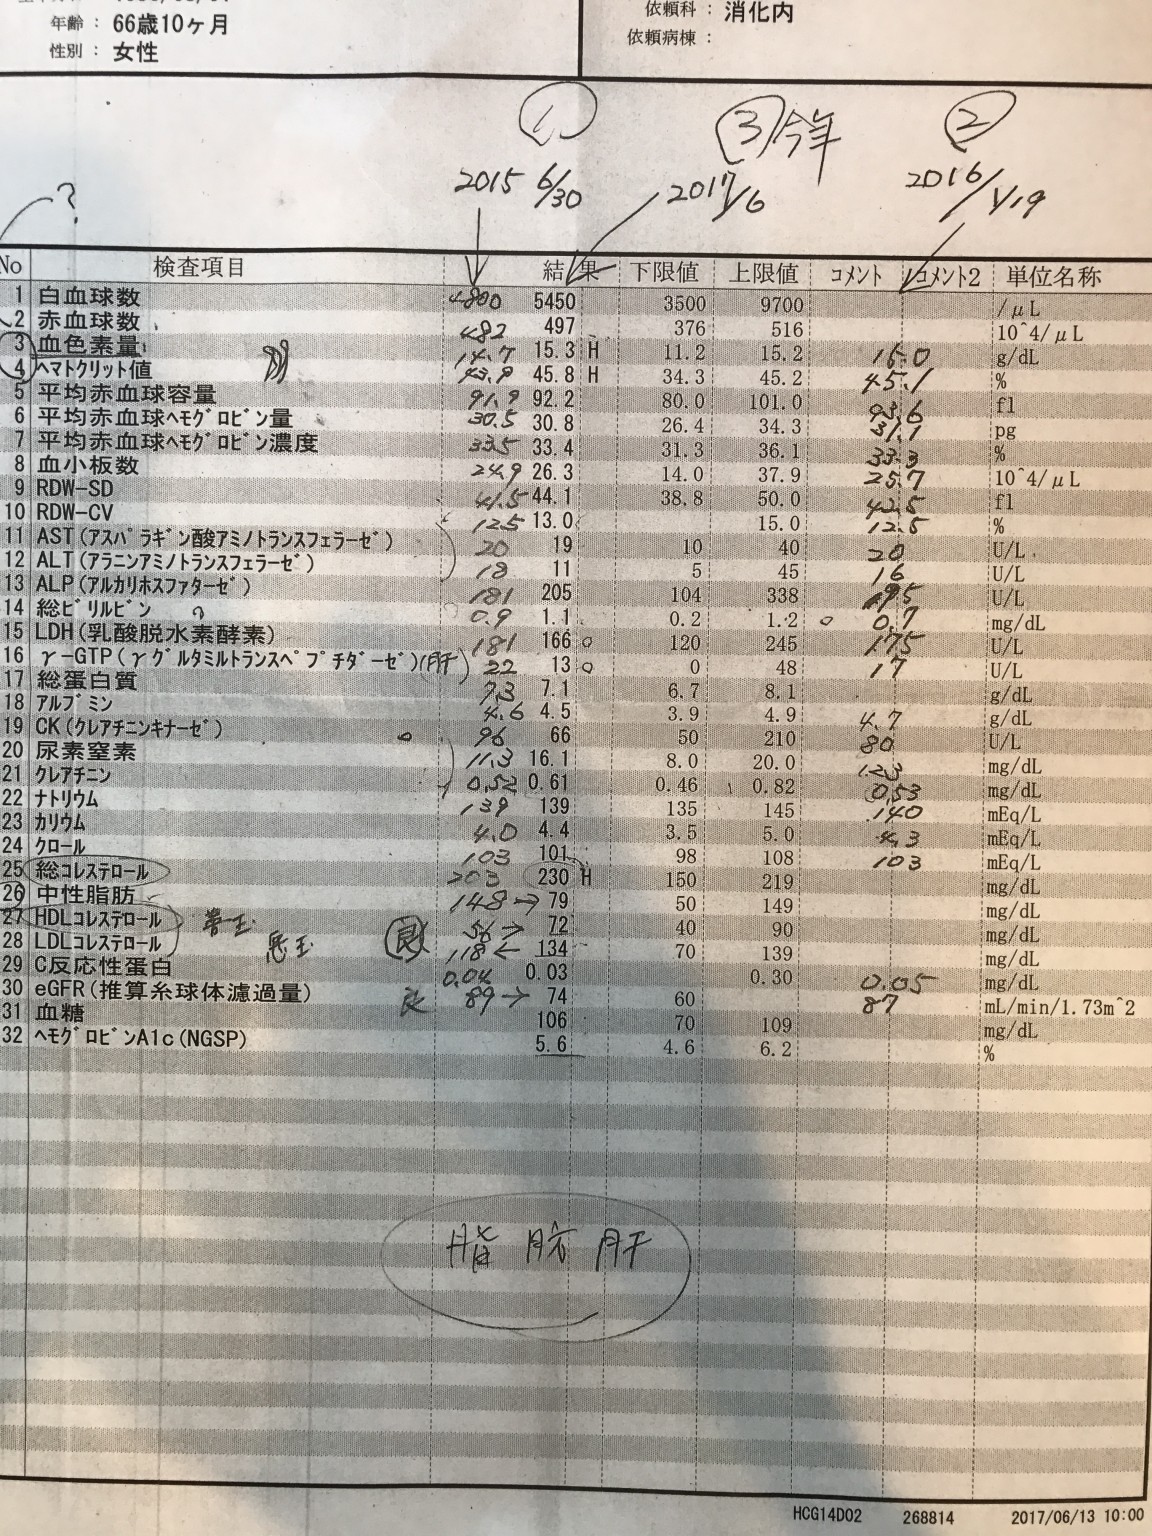 年齢： 66歳10ヶ月
性別： 女性
依頼科： 消化内
依頼病棟：
① ③今年 ②
2015 6/30 2017/6 2016/1/19
?
No 検査項目 結果 下限値 上限値 コメント コメント2 単位名称
1 白血球数 4800 5450 3500 9700 /μL
2 赤血球数 482 497 376 516 10^4/μL
3 血色素量 14.7 15.3 H 11.2 15.2 15.0 g/dL
4 ヘマトクリット値 43.9 45.8 H 34.3 45.2 45.1 %
5 平均赤血球容量 91.9 92.2 80.0 101.0 93.6 fl
6 平均赤血球ヘモグロビン量 30.5 30.8 26.4 34.3 31.1 pg
7 平均赤血球ヘモグロビン濃度 33.5 33.4 31.3 36.1 33.3 %
8 血小板数 24.9 26.3 14.0 37.9 25.7 10^4/μL
9 RDW-SD 41.5 44.1 38.8 50.0 42.5 fl
10 RDW-CV 12.5 13.0 15.0 12.5 %
11 AST(アスパラギン酸アミノトランスフェラーゼ) 20 19 10 40 20 U/L
12 ALT(アラニンアミノトランスフェラーゼ) 18 11 5 45 16 U/L
13 ALP(アルカリホスファターゼ) 181 205 104 338 195 U/L
14 総ビリルビン 0.9 1.1 0.2 1.2 0.7 mg/dL
15 LDH(乳酸脱水素酵素) 181 166 120 245 175 U/L
16 γ-GTP(γグルタミルトランスペプチダーゼ)(肝) 22 13 0 48 17 U/L
17 総蛋白質 7.3 7.1 6.7 8.1 g/dL
18 アルブミン 4.6 4.5 3.9 4.9 4.7 g/dL
19 CK(クレアチニンキナーゼ) 96 66 50 210 80 U/L
20 尿素窒素 11.3 16.1 8.0 20.0 12.3 mg/dL
21 クレアチニン 0.52 0.61 0.46 0.82 0.53 mg/dL
22 ナトリウム 139 139 135 145 140 mEq/L
23 カリウム 4.0 4.4 3.5 5.0 4.3 mEq/L
24 クロール 103 101 98 108 103 mEq/L
25 総コレステロール 203 230 H 150 219 mg/dL
26 中性脂肪 148→ 79 50 149 mg/dL
27 HDLコレステロール 善玉 56→ 72 40 90 mg/dL
28 LDLコレステロール 悪玉 良 118← 134 70 139 mg/dL
29 C反応性蛋白 0.04 0.03 0.30 0.05 mg/dL
30 eGFR(推算糸球体濾過量) 良 89→ 74 60 87 mL/min/1.73m^2
31 血糖 106 70 109 mg/dL
32 ヘモグロビンA1c(NGSP) 5.6 4.6 6.2 %
脂肪肝
HCG14D02 268814 2017/06/13 10:00